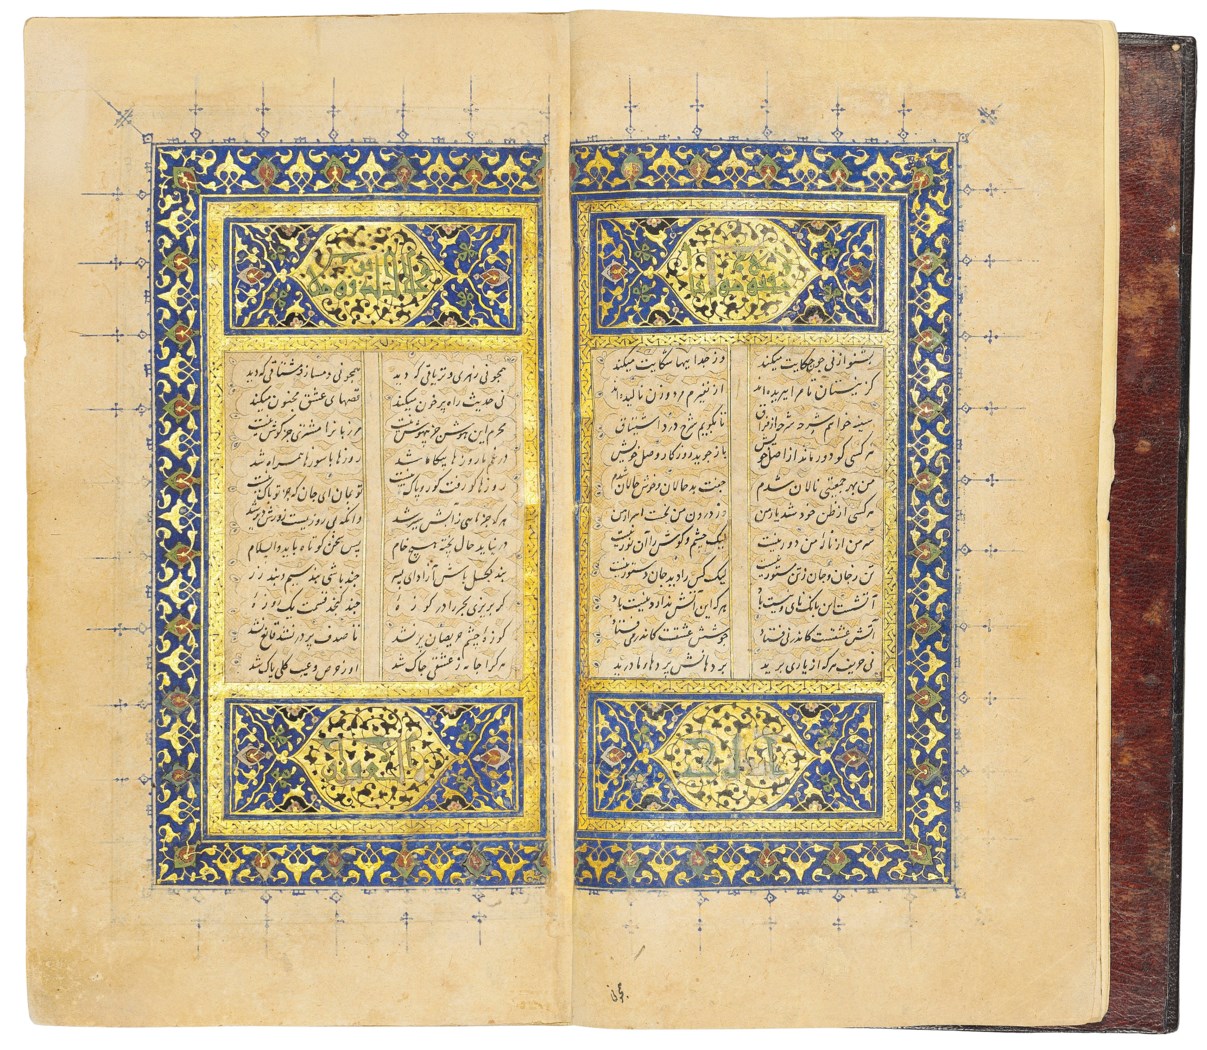 بشنو از نی چون حکایت میکند وز جدایها شکایت میکند
کز نیستان تا مرا ببریده‌اند از نفیرم مرد و زن نالیده‌اند
سینه خواهم شرحه شرحه از فراق تا بگویم شرح درد اشتیاق
هر کسی کو دور ماند از اصل خویش باز جوید روزکار وصل خویش
من بهر جمعیتی نالان شدم جفت بدحالان و خوش حالان شدم
هر کسی از ظن خود شد یار من وز درون من نجست اسرار من
سر من از نالهٔ من دور نیست لیک چشم و گوش را آن نور نیست
تن ز جان و جان ز تن مستور نیست لیک کس را دید جان دستور نیست
آتشست این بانک نای و نیست باد هر که این آتش ندارد نیست باد
آتش عشقست کاندر نی فتاد جوشش عشقست کاندر می فتاد
نی حریف هر که از یاری برید پردهایش پردهای ما درید
همچو نی زهری و تریاقی که دید همچو نی دمساز و مشتاقی که دید
نی حدیث راه پر خون میکند قصهای عشق مجنون میکند
محرم این هوش جز بیهوش نیست مر زبانرا مشتری جز گوش نیست
در غم ما روزها بیکاه شد روزها با سوزها همراه شد
روزها کر رفت کو رو باک نیست تو بمان ای جان که جز تو پاک نیست
هر که جز ماهی ز آبش سیر شد وانکه بی روزیست روزش دیر شد
در نیابد حال پخته هیچ خام پس سخن کوتاه باید والسلام
بند بکسل باش آزاد ای پسر چند باشی بند سیم و بند زر
کر بریزی بحر را در کوزهٔ چند کنجد قسمت یک روزهٔ
کوزهٔ چشم حریصان پر نشد تا صدف قانع نشد پر در نشد
هر کرا جامه ز عشقی چاک شد او ز حرص و عیب کلی پاک شد